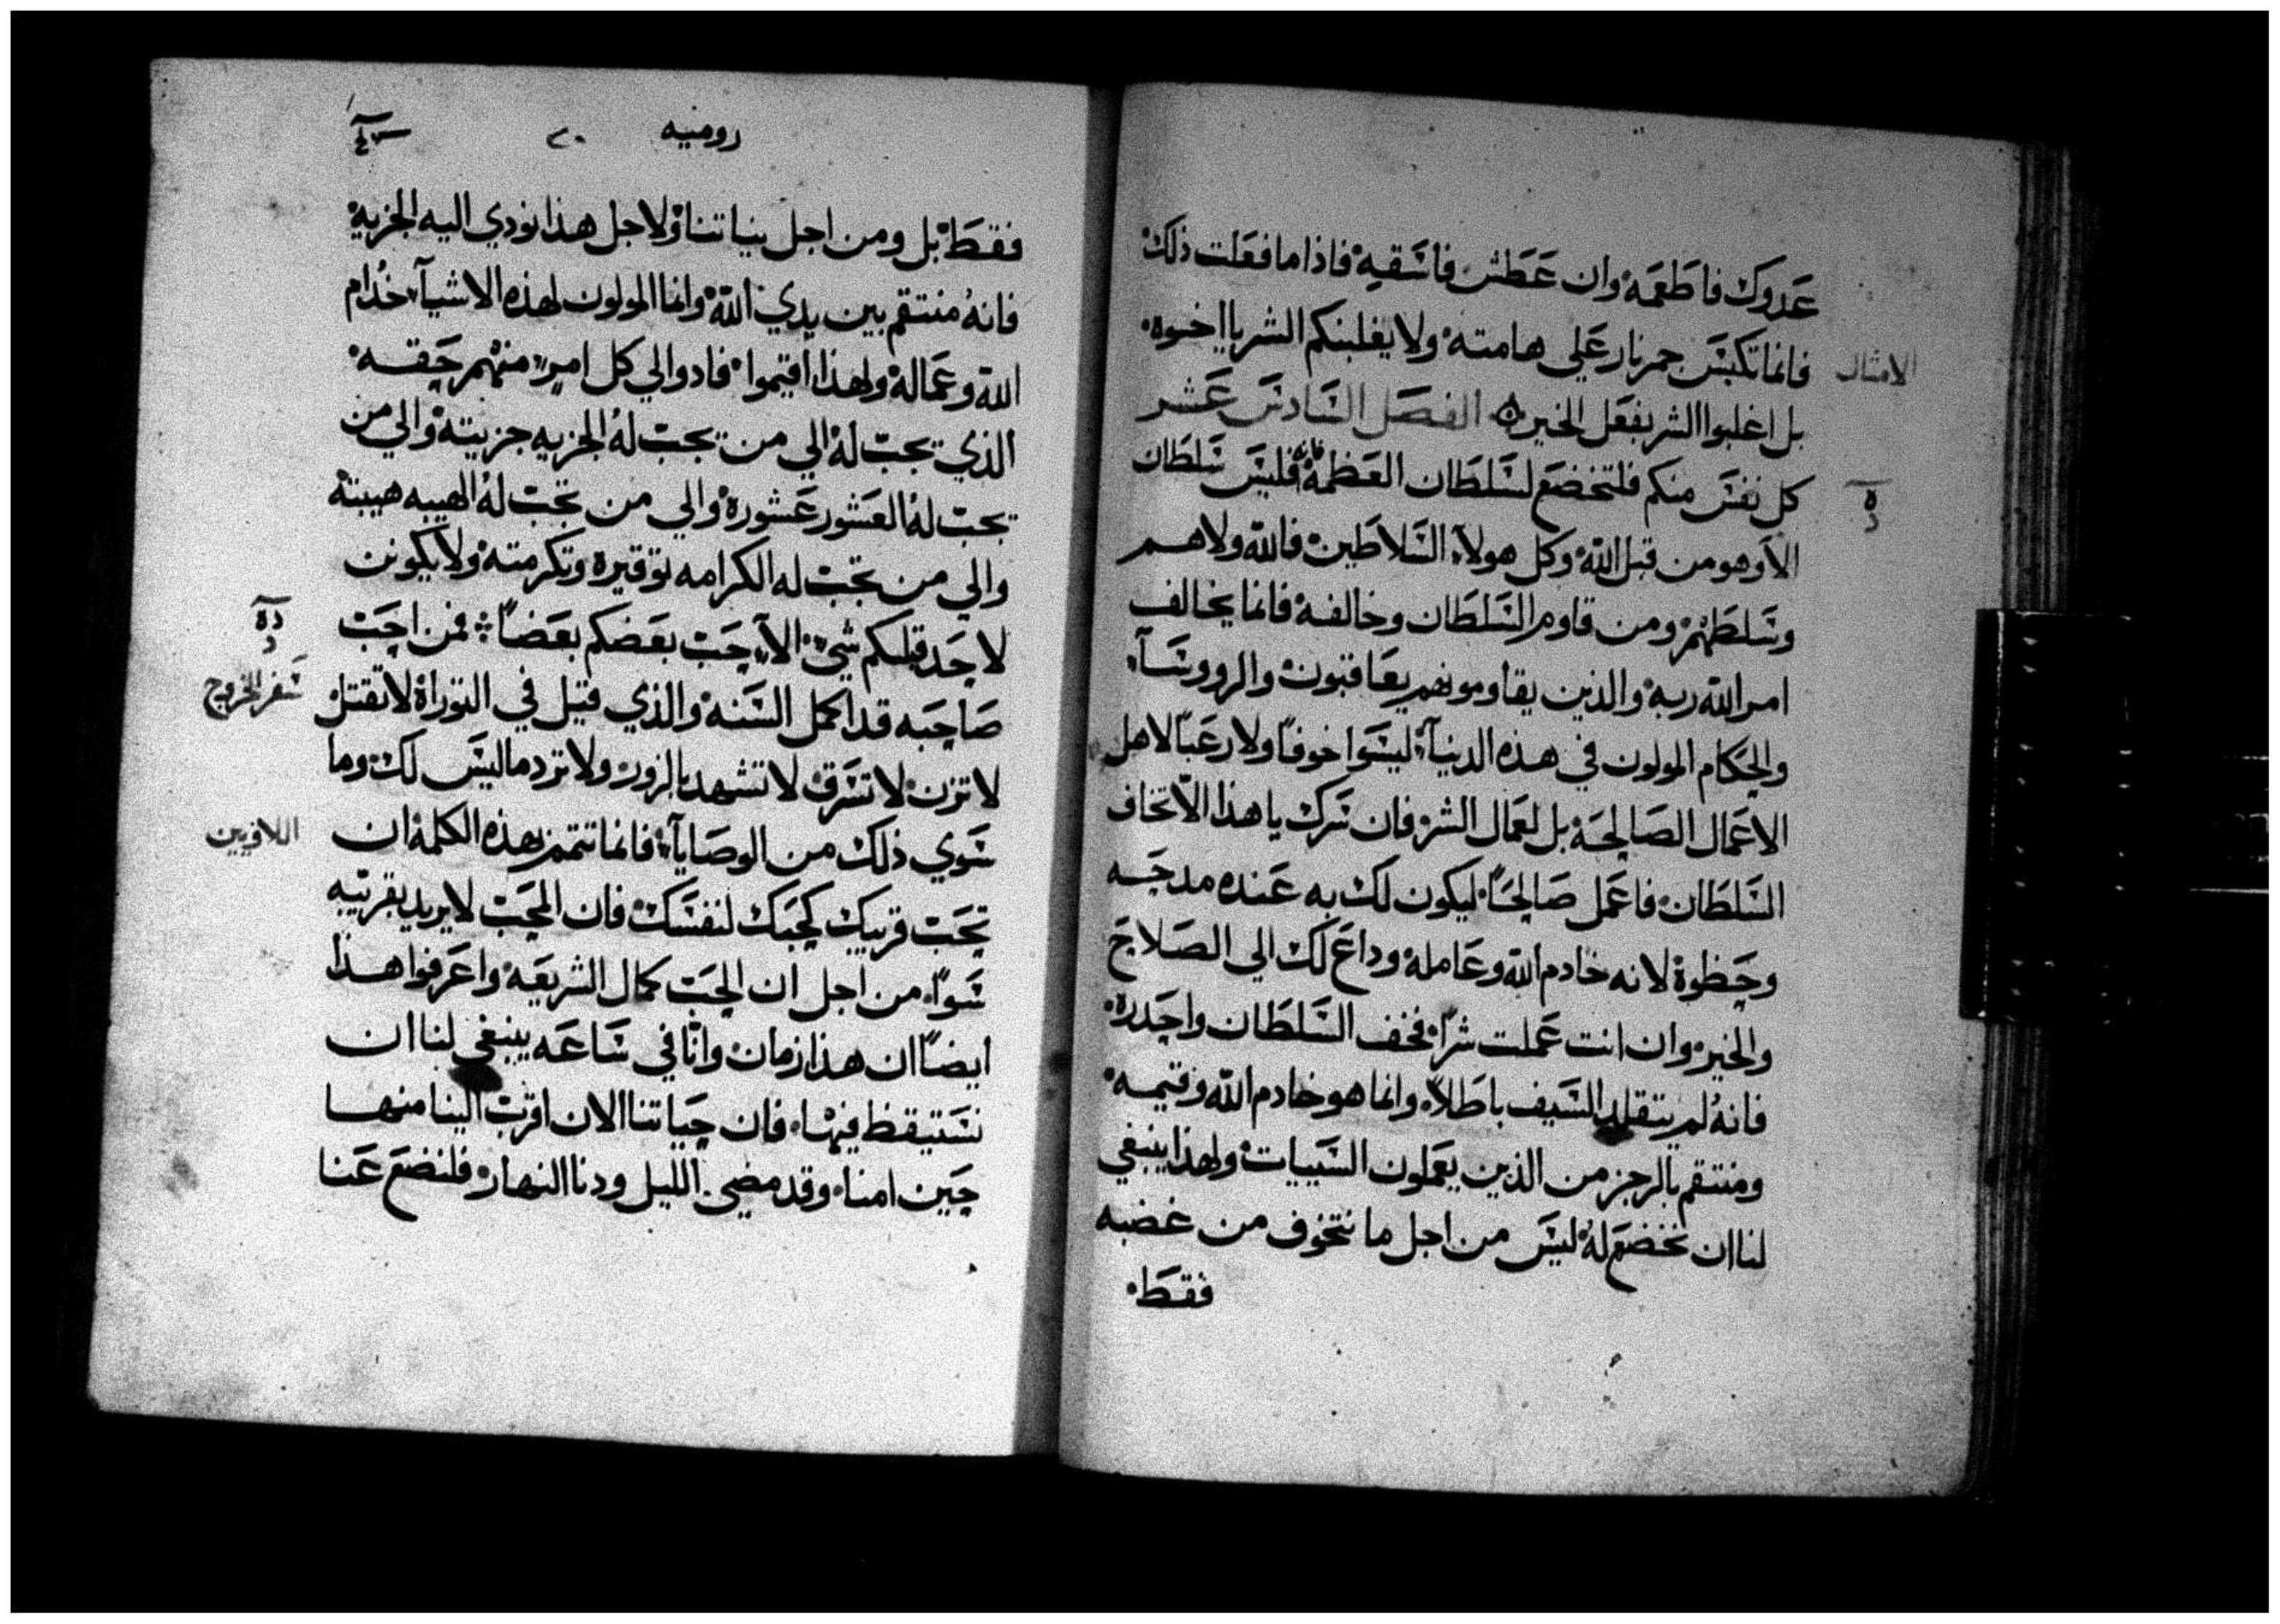 عدوك فاطعمه وان عطش فاسقيه فاذا ما فعلت ذلك
فانما تكبس جمر نار علي هامته ولا يغلبنكم الشر يا اخوه
الامثال
بل اغلبوا الشر بفعل الخير الفصل السادس عشر
كل نفس منكم فلتخضع لسلطان العظمة فليس سلطان
الا وهو من قبل الله وكل هولاء السلاطين فالله ولاهم
وسلطهم ومن قاوم السلطان وخالفه فانما يخالف
امر الله ربه والذين يقاومونهم يعاقبون والروسآء
والحكام المولون في هذه الدنيآء ليسوا خوفاً ولا رعباً لاهل
الاعمال الصالحة بل لعمال الشر فان سرك يا هذا الا تخاف
السلطان فاعمل صالحاً ليكون لك به عنده مدحه
وحظوة لانه خادم الله وعامله وداع لك الي الصلاح
والخير وان انت عملت شراً فخف السلطان واحذره
فانه لم يتقلد السيف باطلاً وانما هو خادم الله وقيمه
ومنتقم بالرجز من الذين يعملون السييات ولهذا ينبغي
لنا ان نخضع له ليس من اجل ما نتخوف من غضبه
فقط
رومنيه ٢٠
فقط بل ومن اجل نياتنا ولاجل هذا نودي اليه الجزيه
فانه منتقم بين يدي الله وانما المولون لهذه الاشيآء خدام
الله وعماله ولهذا اقيموا فادوا الي كل امرء منهم حقه
الذي يجب له الي من يجب له الجزيه جزيته والي من
يجب له العشور عشوره والي من تجب له الهيبه هيبته
والي من تجب له الكرامه توقيره وتكرمته ولا يكونن
لاحد قبلكم شي الآء حب بعضكم بعضاً فمن احب
صاحبه قد اكمل السنه والذي قيل في التوراة لا تقتل
سفر الخروج
لا تزن لا تسرق لا تشهد بالزور ولا ترد ما ليس لك وما
سوي ذلك من الوصايآء فانما تتم بهذه الكلمة ان
اللاويين
تحب قريبك كحبك لنفسك فان المحب لا يريد بقريبه
سواً من اجل ان الحب كمال الشريعه واعرفوا هذا
ايضاً ان هذا زمان وانا في ساعه ينبغي لنا ان
نستيقظ فيها فان حياتنا الان اقرب الينا منها
حين امنا وقد مضي الليل ودنا النهار فلنضع عنا